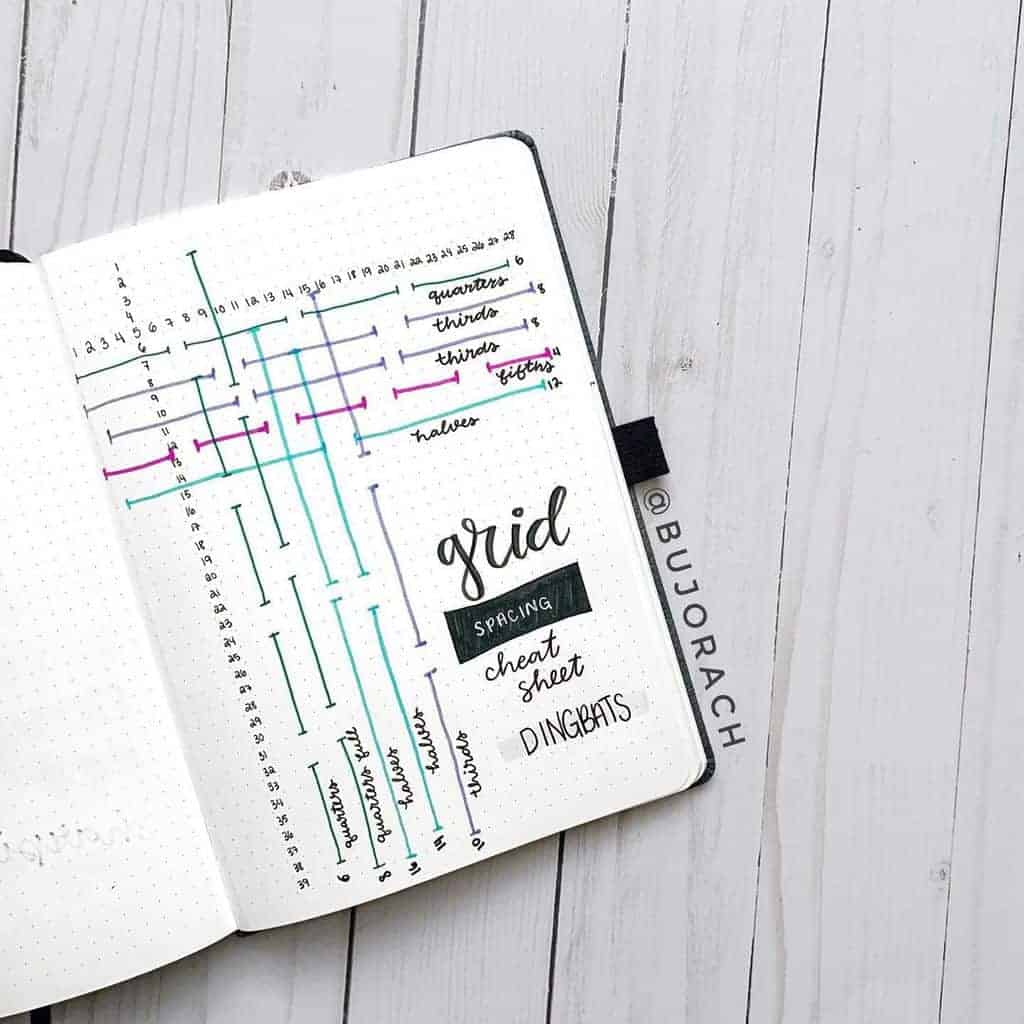 1
2
3
4
1 2 3 4 5 6 7 8 9 10 11 12 13 14 15 16 17 18 19 20 21 22 23 24 25 26 27 28
6
7
8
9
10
11
12
13
14
15
16
17
18
19
20
21
22
23
24
25
26
27
28
29
30
31
32
33
34
35
36
37
38
39
quarters 6
thirds 8
thirds 8
fifths 4
halves 12
grid
SPACING
cheat
sheet
DINGBATS
quarters 6
quarters full 8
halves 16
halves
thirds 10
@BUJORACH